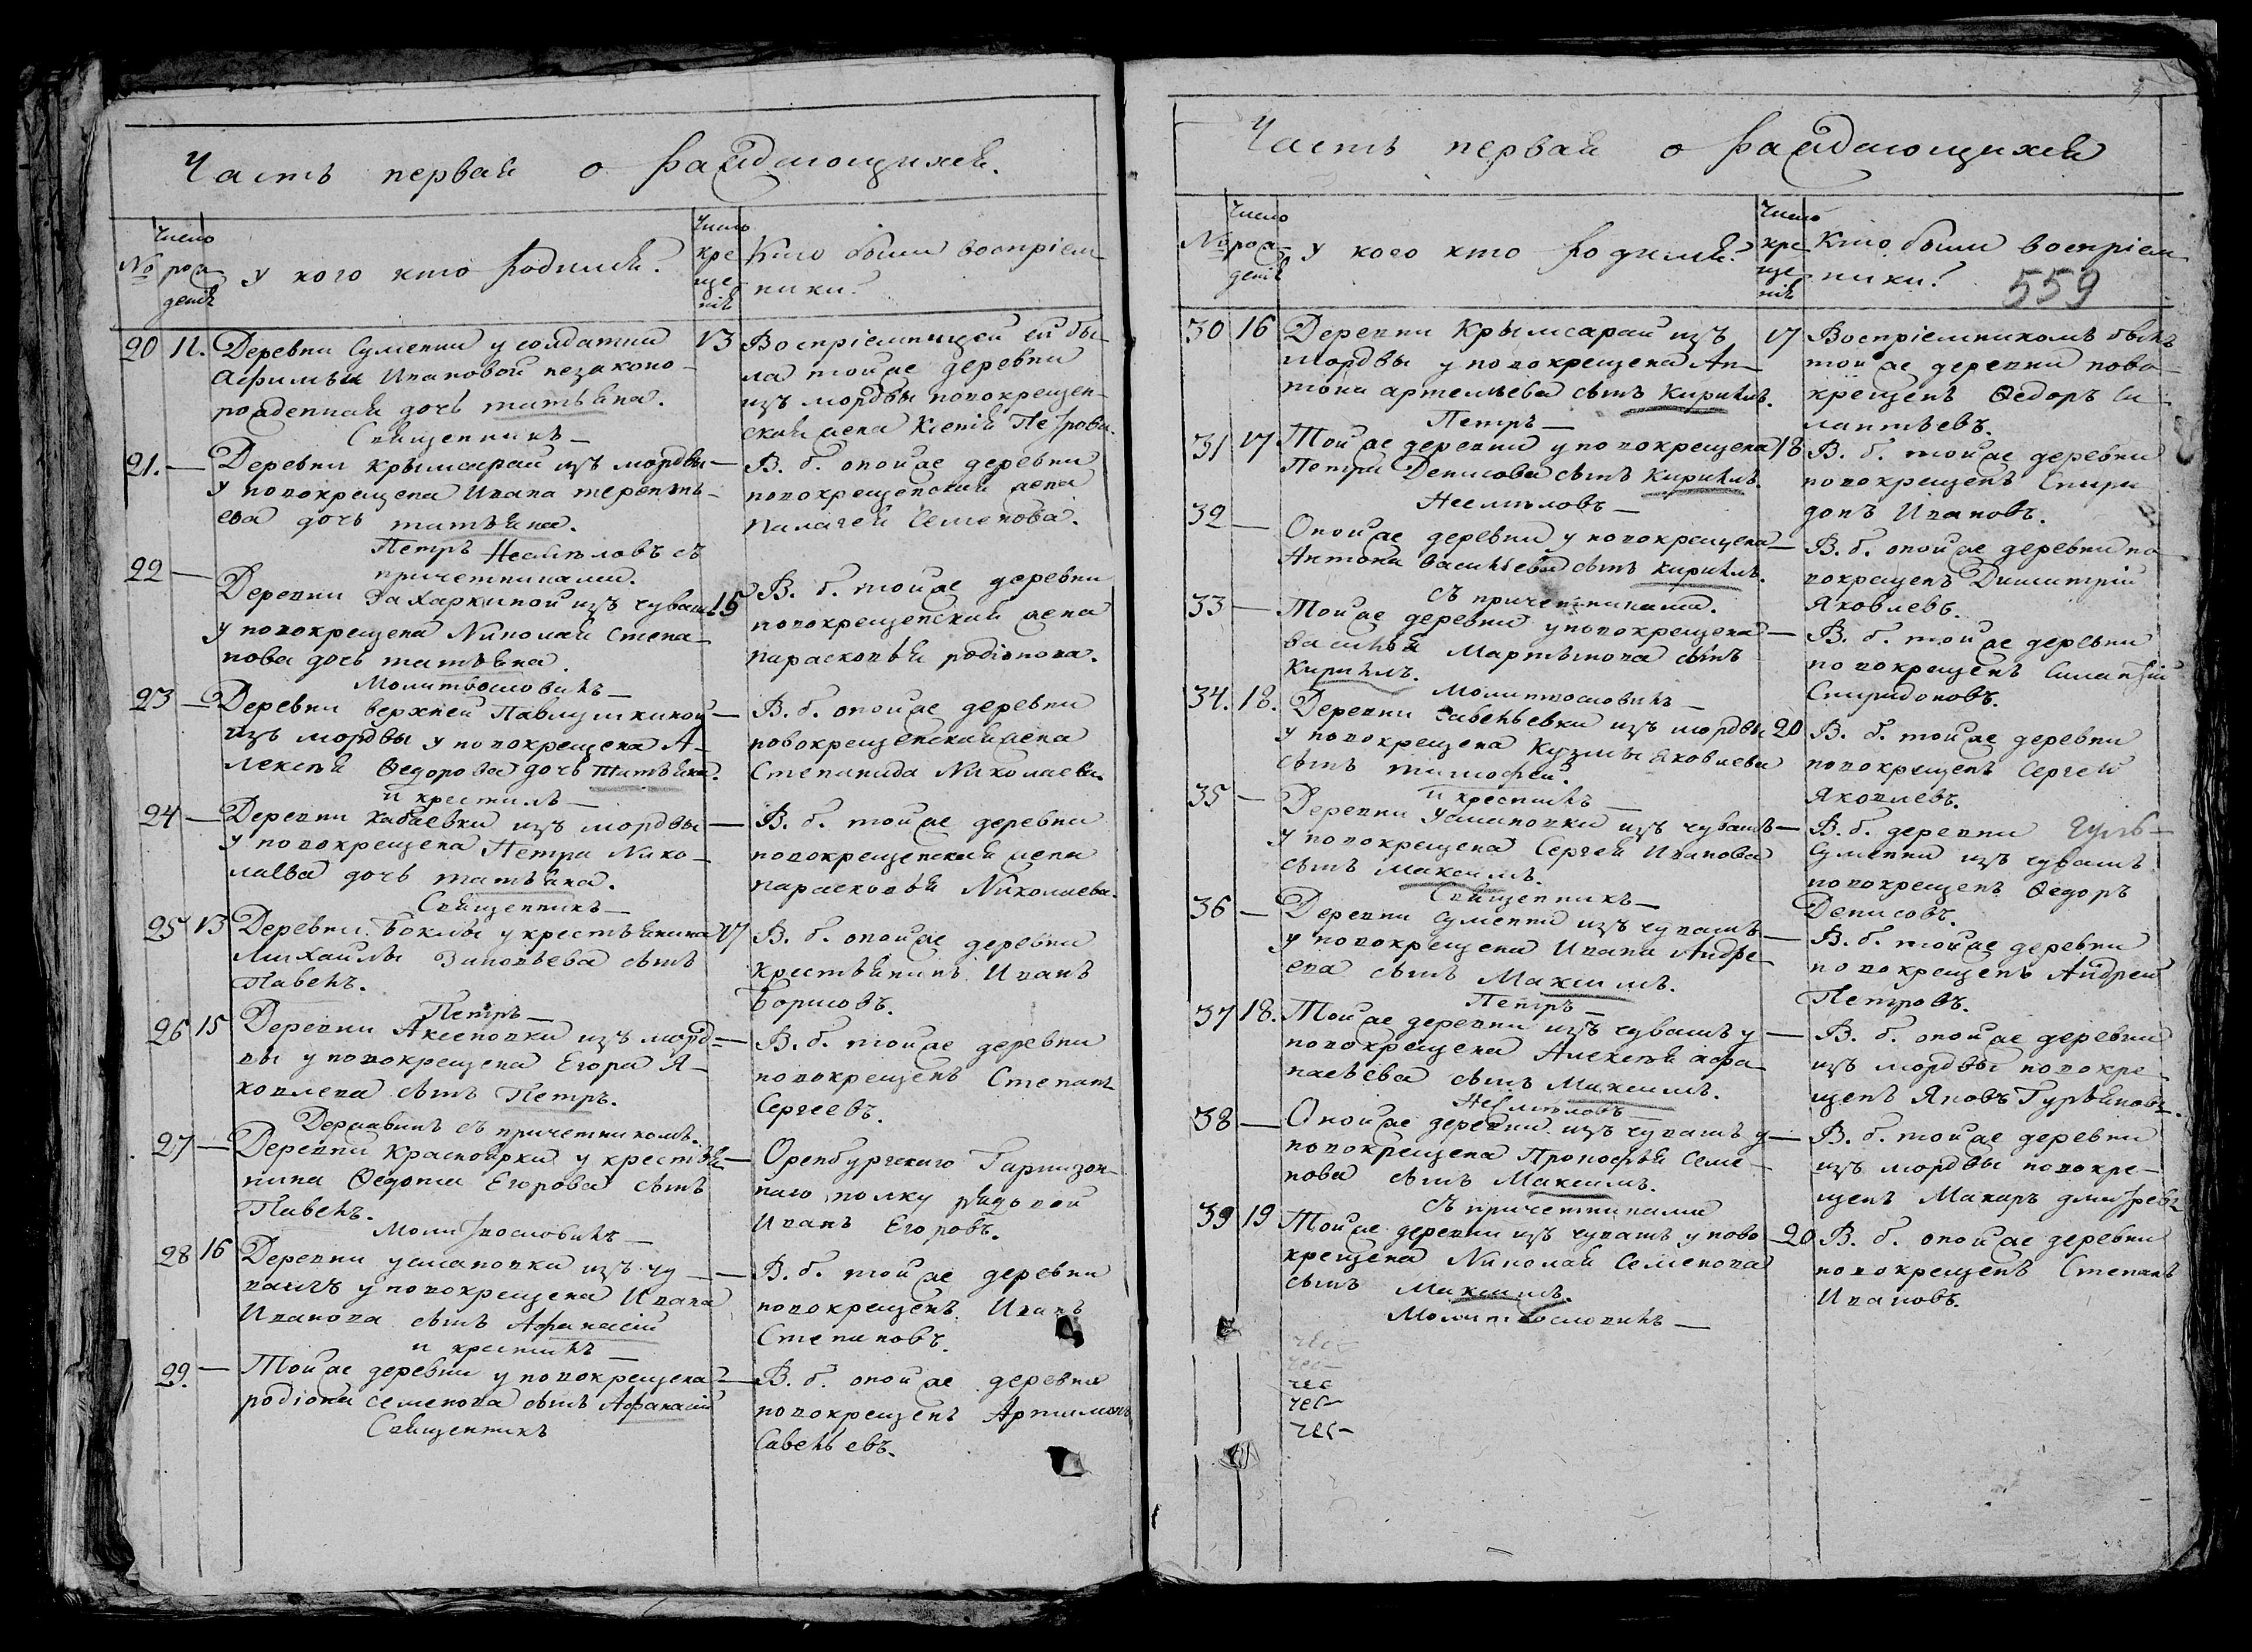 Часть первая о раждающихся.
№
Число рожденія
У кого кто родился?
Число крещенія
Кто были воспріемники?
20 11. Деревни Сулеевки у солдатки
Афимьи Ивановой незаконо-
рожденная дочь татьяна.
Священникъ —
13 Воспріемницей ей бы-
ла тойже деревни
изъ мордвы новокрещен-
ская жена Ксенія Петрова.
21. — Деревни крымсарай изъ мордвы
у новокрещена Ивана терентье-
ева дочь татьяна.
Петръ Несмѣловъ съ
причетниками.
— В. б. онойже деревни
новокрещенская жена
Палагея Семенова.
22 —
Деревни Захаркиной изъ чувашъ
у новокрещена Николая степа-
нова дочь татьяна.
Молитвословилъ —
15 В. б. тойже деревни
новокрещенская жена
парасковья родіонова.
23 — Деревни верхней Павлушкиной
изъ мордвы у новокрещена А-
лексѣя Ѳедорова дочь татьяна.
и крестилъ —
— В. б. онойже деревни
новокрещенская жена
Степанида Николаева.
24 — Деревни Кабаевки изъ мордвы
у новокрещена Петра Нико-
лаева дочь татьяна.
Священникъ —
— В. б. тойже деревни
новокрещенская жена
парасковья Николаева.
25 13 Деревни Боклы у крестьянина
Михайлы Зиновьева сынъ
Павелъ.
Петръ —
17 В. б. онойже деревни
крестьянинъ Иванъ
Борисовъ.
26 15 Деревни Аксеновки изъ морд-
вы у новокрещена Егора Я-
ковлева сынъ Петръ.
Державинъ съ причетникомъ.
— В. б. тойже деревни
новокрещенъ Степанъ
Сергеевъ.
27 — Деревни Красноярки у крестья-
нина Ѳедота Егорова сынъ
Павелъ.
Молитвословилъ —
— Оренбургскаго Гарнизон-
наго полку рядовой
Иванъ Егоровъ.
28 16 Деревни усмановки изъ чу-
вашъ у новокрещена Ивана
Иванова сынъ Афанасій
и крестилъ —
— В. б. тойже деревни
новокрещенъ Иванъ
Степановъ.
29. — Тойже деревни у новокрещена
родіона семенова сынъ Афанасій
Священникъ
— В. б. онойже деревни
новокрещенъ Артамонъ
Савельевъ.
Часть первая о раждающихся
№
Число рожденія
У кого кто родился?
Число крещенія
Кто были воспріемники?
559
30 16 Деревни Крымсарай изъ
мордвы у новокрещена Ан-
тона артемьева сынъ Кирилъ.
Петръ —
17 Воспріемникомъ былъ
тойже деревни ново-
крещенъ Ѳедоръ Си-
лантьевъ.
31 17 Тойже деревни у новокрещена
Петра Денисова сынъ Кирилъ.
Несмѣловъ —
18 В. б. тойже деревни
новокрещенъ Спири
донъ Ивановъ.
32 —
Онойже деревни у новокрещена
Антона васильева сынъ кирилъ.
съ причетниками.
— В. б. онойже деревни но-
вокрещенъ Димитрій
Яковлевъ.
33 — Тойже деревни у новокрещена
василья Мартынова сынъ
Кирилъ.
Молитвословилъ —
— В. б. тойже деревни
новокрещенъ Силантій
Спиридоновъ.
34. 18. Деревни савельевки изъ мордвы
у новокрещена Кузмы яковлева
сынъ тимофей.
и крестилъ —
20 В. б. тойже деревни
новокрещенъ Сергей
Яковлевъ.
35 — Деревни Усмановки изъ чувашъ
у новокрещена Сергея Иванова
сынъ Максимъ.
Священникъ —
— В. б. деревни
Сулеевки изъ чувашъ
новокрещенъ Ѳедоръ
Денисовъ.
36 — Деревни Сулеевки изъ чувашъ
у новокрещена Ивана Андре-
ева сынъ Максимъ.
Петръ —
— В. б. тойже деревни
новокрещенъ Андрей
Петровъ.
37 18. Тойже деревни изъ чувашъ у
новокрещена Алексѣя афа-
насьева сынъ Максимъ.
Несмѣловъ —
— В. б. онойже деревни
изъ мордвы новокре-
щенъ Яковъ Гурьяновъ.
38 — Онойже деревни изъ чувашъ у
новокрещена Прокофья Семе-
нова сынъ Максимъ.
съ причетниками
— В. б. тойже деревни
изъ мордвы новокре-
щенъ Макаръ дмитревъ
39 19 Тойже деревни изъ чувашъ у ново
крещена Николая Семенова
сынъ Максимъ.
Молитвословилъ —
20 В. б. онойже деревни
новокрещенъ Степанъ
Ивановъ.